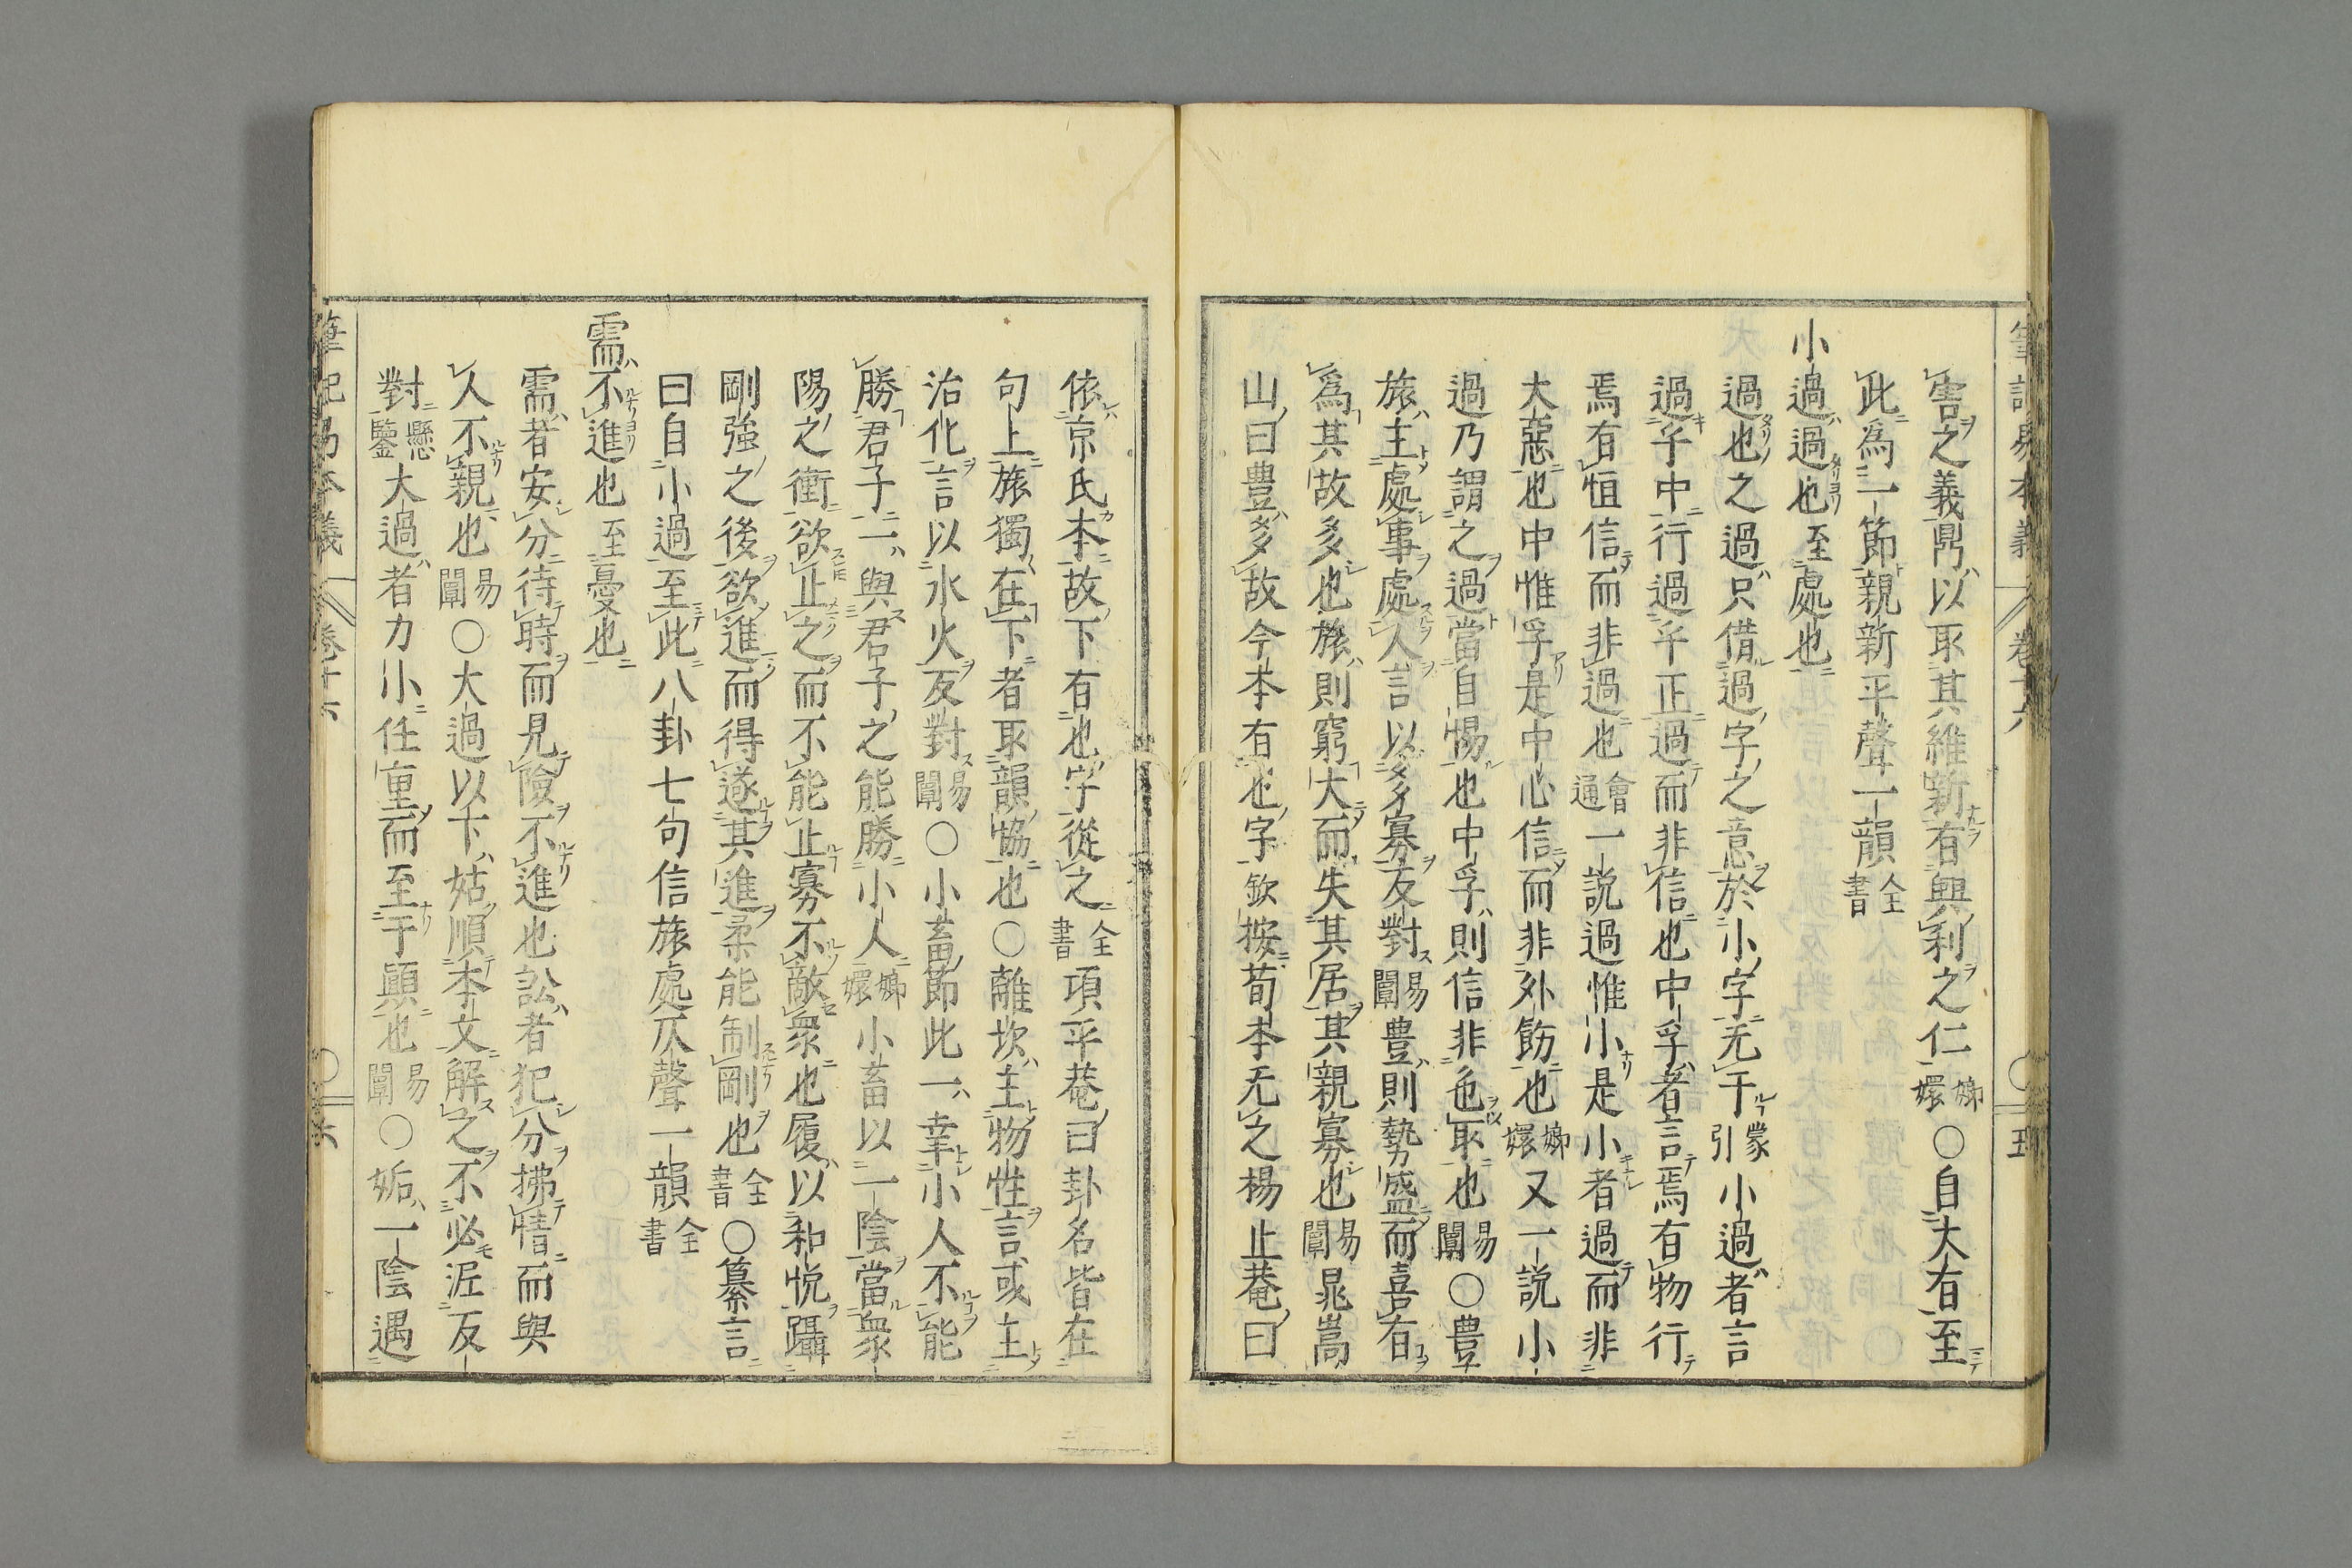 筆記易本義 卷十六 ○ 五
害之義鼎以取其維新有興利之仁 嫏嬛 ○自大有至
此為一節親新平聲一韻 全書
小過過也至處也
過也之過只借過字之意於小字无干 蒙引 小過者言
過乎中行過乎正過而非信也中孚者言焉有物行
焉有恒信而非過也 會通 一說過惟小是小者過而非
大惡也中惟孚是中心信而非外飭也 嫏嬛 又一說小
過乃謂之過當自惕也中孚則信非色取也 易闡 ○豊
旅主處事處人言以多寡反對 易闡 豊則勢盛而喜有
為其故多也旅則窮大而失其居其親寡也 易闡 晁嵩
山曰豊多故今本有也字 欽按荀本无之楊止菴曰
依京氏本故下有也字從之 全書 項平菴曰卦名皆在
句上旅獨在下者取韻協也○離坎主物性言或主
治化言以水火反對 易闡 ○小畜節此一幸小人不能
勝君子一與君子之能勝小人 嫏嬛 小畜以一陰當眾
陽之衝欲止之而不能止寡不敵衆也履以和悅躡
剛強之後欲進而得遂其進柔能制剛也 全書 ○纂言
曰自小過至此八卦七句信旅處仄聲一韻 全書
需不進也至憂也
需者安分待時而見險不進也訟者犯分拂情而與
人不親也 易闡 ○大過以下姑順本文解之不必泥反
對 懸鑒 大過者力小任重而至于顛也 易闡 ○姤一陰遇
筆記易本義 卷十六 ○ 六